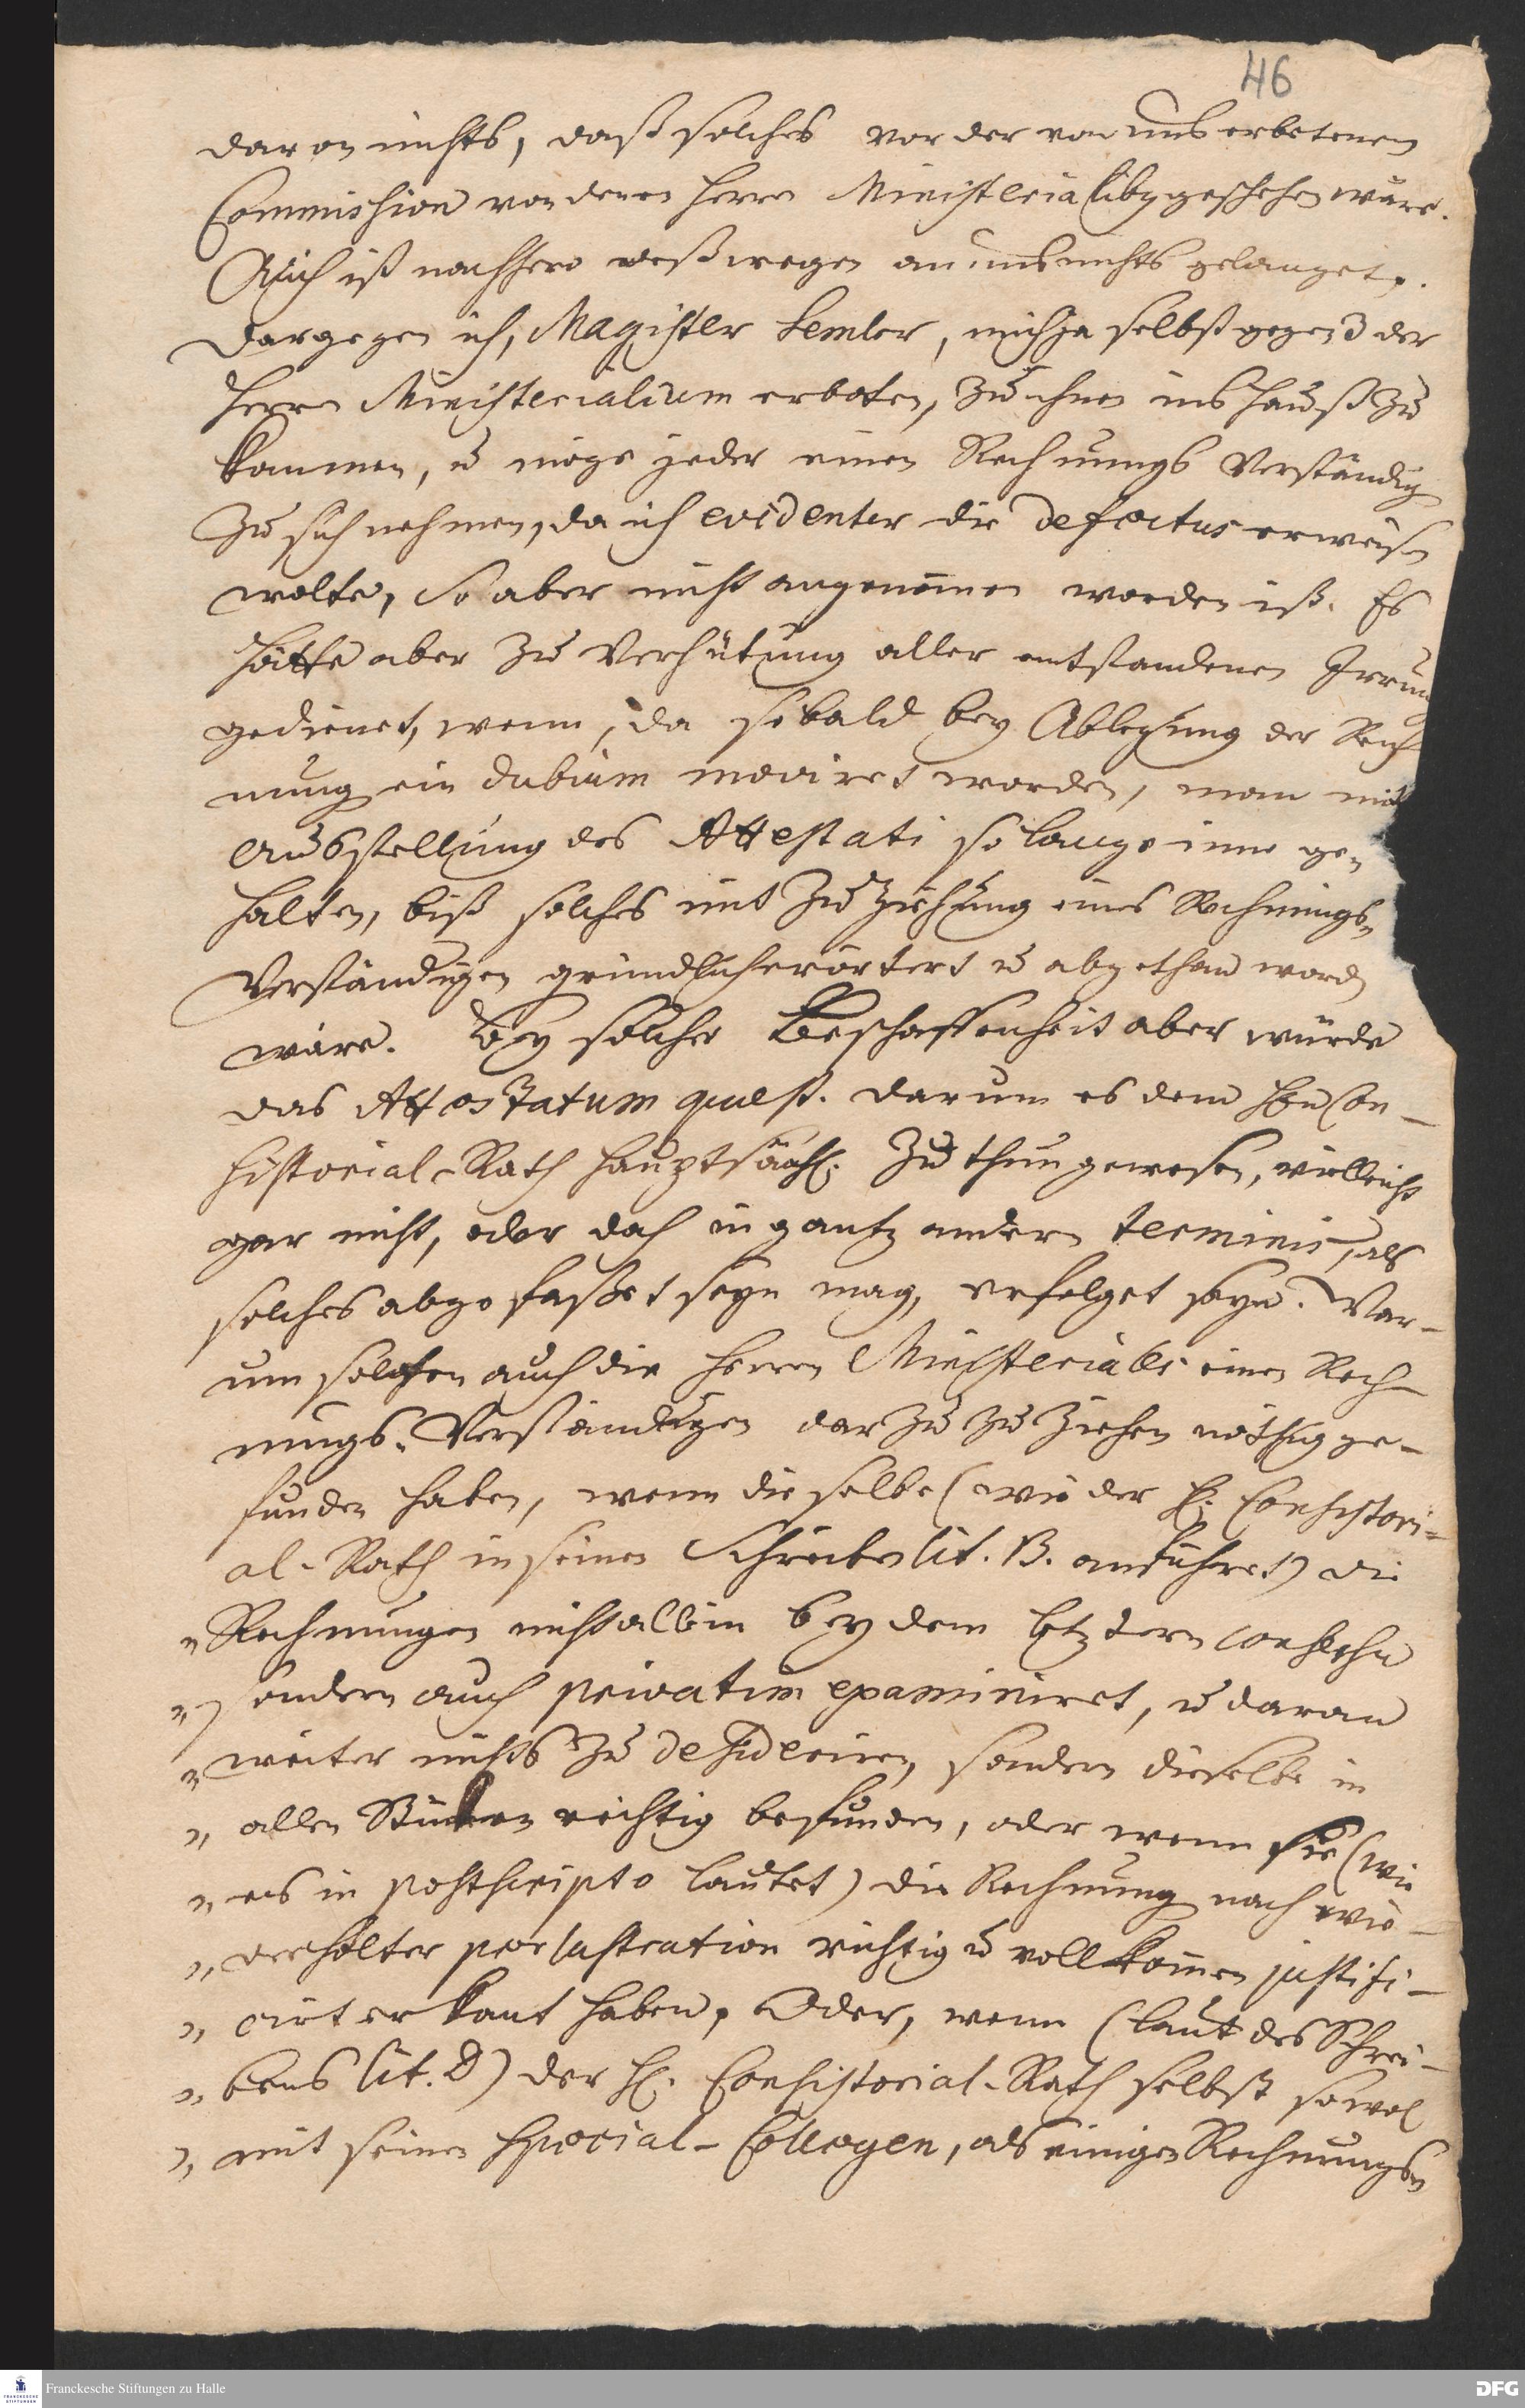 46
davon nichts, daß solches vor der von uns erbetenen
Commission von denen Herrn Ministerialibg geschehen wäre.
Auch ist nachhero deßwegen an uns nichts gelanget.
Dargegen ich, Magister Semler, mich ja selbst gegen der
Herrn Ministerialium erboten, zu ihnen ins Hauß zu
kommen, u möge jeder einen Rechnungs Verständig
zu sich nehmen, da ich evidenter die defectus erweisen
wolte, So aber nicht angenommen worden ist. Es
hätte aber zu Verhütung aller entstandenen Irrun
gedienet, wenn, da sobald bey Ablegung der Rech
nung ein dubium moviret worden, man mit
Ausstellung des Attestati so lange inne ge-
halten, biß solches mit Zuziehung eines Rechnungs-
Verständigen gründlich erörtert u abgethan word
wäre. Bey solcher Beschaffenheit aber würde
das Attestatum quaest. darum es dem Hn Con-
sistorial-Rath hauptsächl. zu thun gewesen, vielleicht
gar nicht, oder doch in gantz andern terminis, als
solches abgefaßet seyn mag, erfolget seyn. War-
um solten auch die Herren Ministeriales einen Rech-
nungs-Verständigen darzu zu ziehen nöthig ge-
funden haben, wenn dieselbe (wie der H. Consistori-
al-Rath in seinen Schreiben lit. B. anführet) die
„Rechnungen nicht allein bey dem letztern Consessu
„sondern auch privatim examiniret, u daran
„weiter nichts zu desideriren, sondern dieselbe in
„allen Stücken richtig befunden, oder wenn sie (wie
„es in postscripto lautet) die Rechnung nach wie-
„derholter perlustration richtig u vollkommen justifi-
„cirt erkant haben, Oder, wenn (laut des Schrei-
„bens lit. D) der H. Consistorial-Rath selbst sowol
„mit seinen Special-Collegen, als einigen Rechnungs-
Franckesche Stiftungen zu Halle
DFG